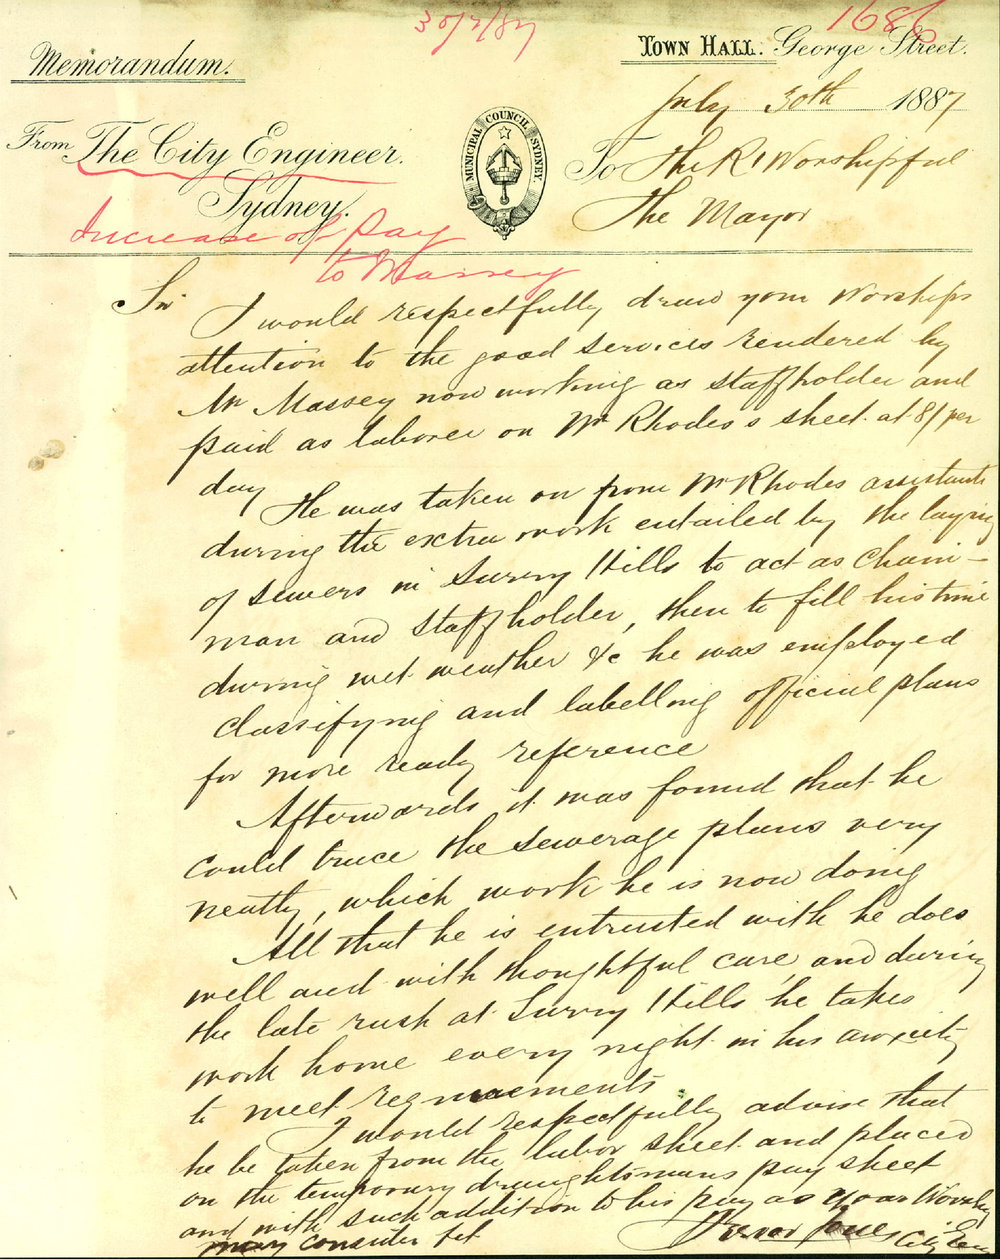 30/7/87
1686
Memorandum.
TOWN HALL. George Street.
July 30th 1887
From The City Engineer.
Sydney.
MUNICIPAL COUNCIL SYDNEY.
To The Rt Worshipful
The Mayor
Increase of pay
to Massey
Sir
I would respectfully draw your Worships
attention to the good services rendered by
Mr Massey now working as staffholder and
paid as laborer on Mr Rhodes's sheet at 8/ per
day
He was taken on from Mr Rhodes assistants
during the extra work entailed by the laying
of sewers in Surry Hills to act as Chain-
man and staffholder, then to fill his time
during wet weather &c he was employed
classifying and labelling official plans
for more ready reference
Afterwards it was found that he
could trace the sewerage plans very
neatly, which work he is now doing
All that he is entrusted with he does
well and with thoughtful care, and during
the late rush at Surry Hills he takes
work home every night in his anxiety
to meet requirements
I would respectfully advise that
he be taken from the labor sheet and placed
on the temporary draughtsmans pay sheet
and with such addition to his pay as your Worship
may consider fit
Trevor Jones
City Eng